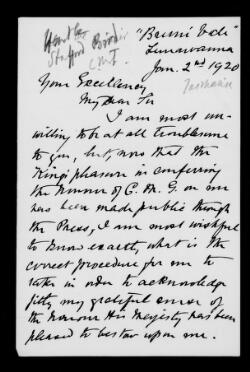 "Bruni Vale"
Lunawanna
Jan. 2nd 1920
Tasmania
Your Excellency
My dear Sir
I am most un-
willing to be at all troublesome
to you, but, now that the
King's pleasure in conferring
the honour of C. M. G. on me
has been made public through
the Press, I am most wishful
to know exactly what is the
correct procedure for me to
take in order to acknowledge
fitly my grateful sense of
the honour His Majesty has been
pleased to bestow upon me.